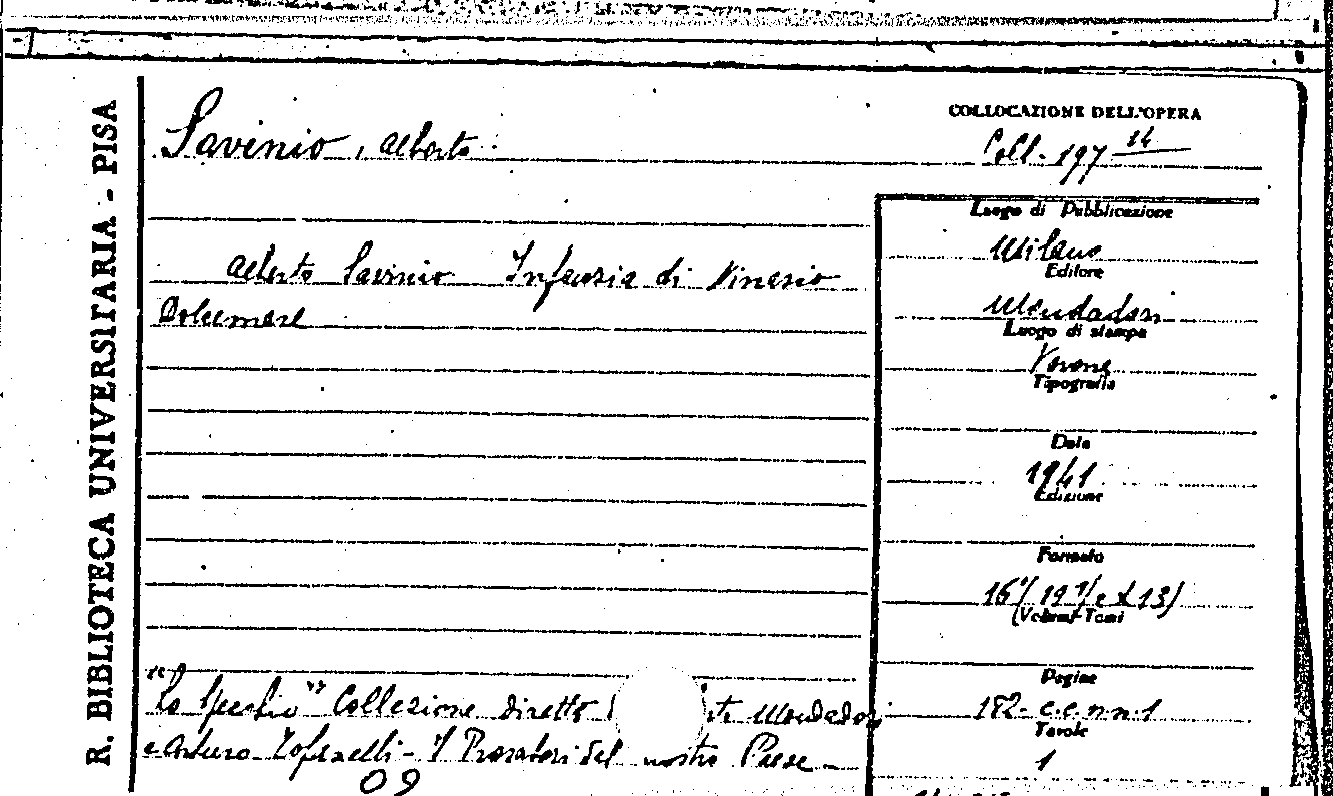 R. BIBLIOTECA UNIVERSITARIA - PISA
Savinio, Alberto.
COLLOCAZIONE DELL'OPERA
Coll. 197 14
Alberto Savinio Infanzia di Nivasio
Dolcemare
Luogo di Pubblicazione
Milano
Editore
Mondadori
Luogo di stampa
Verona
Tipografia
Data
1941
Edizione
Formato
16°(19
13)
(Volumi-Tomi
Pagine
182- c.c.nn.1
Tavole
1
"Lo Specchio" Collezione diretto Mondadori
e Arturo Tofanelli - I Prosatori del nostro Paese -
09